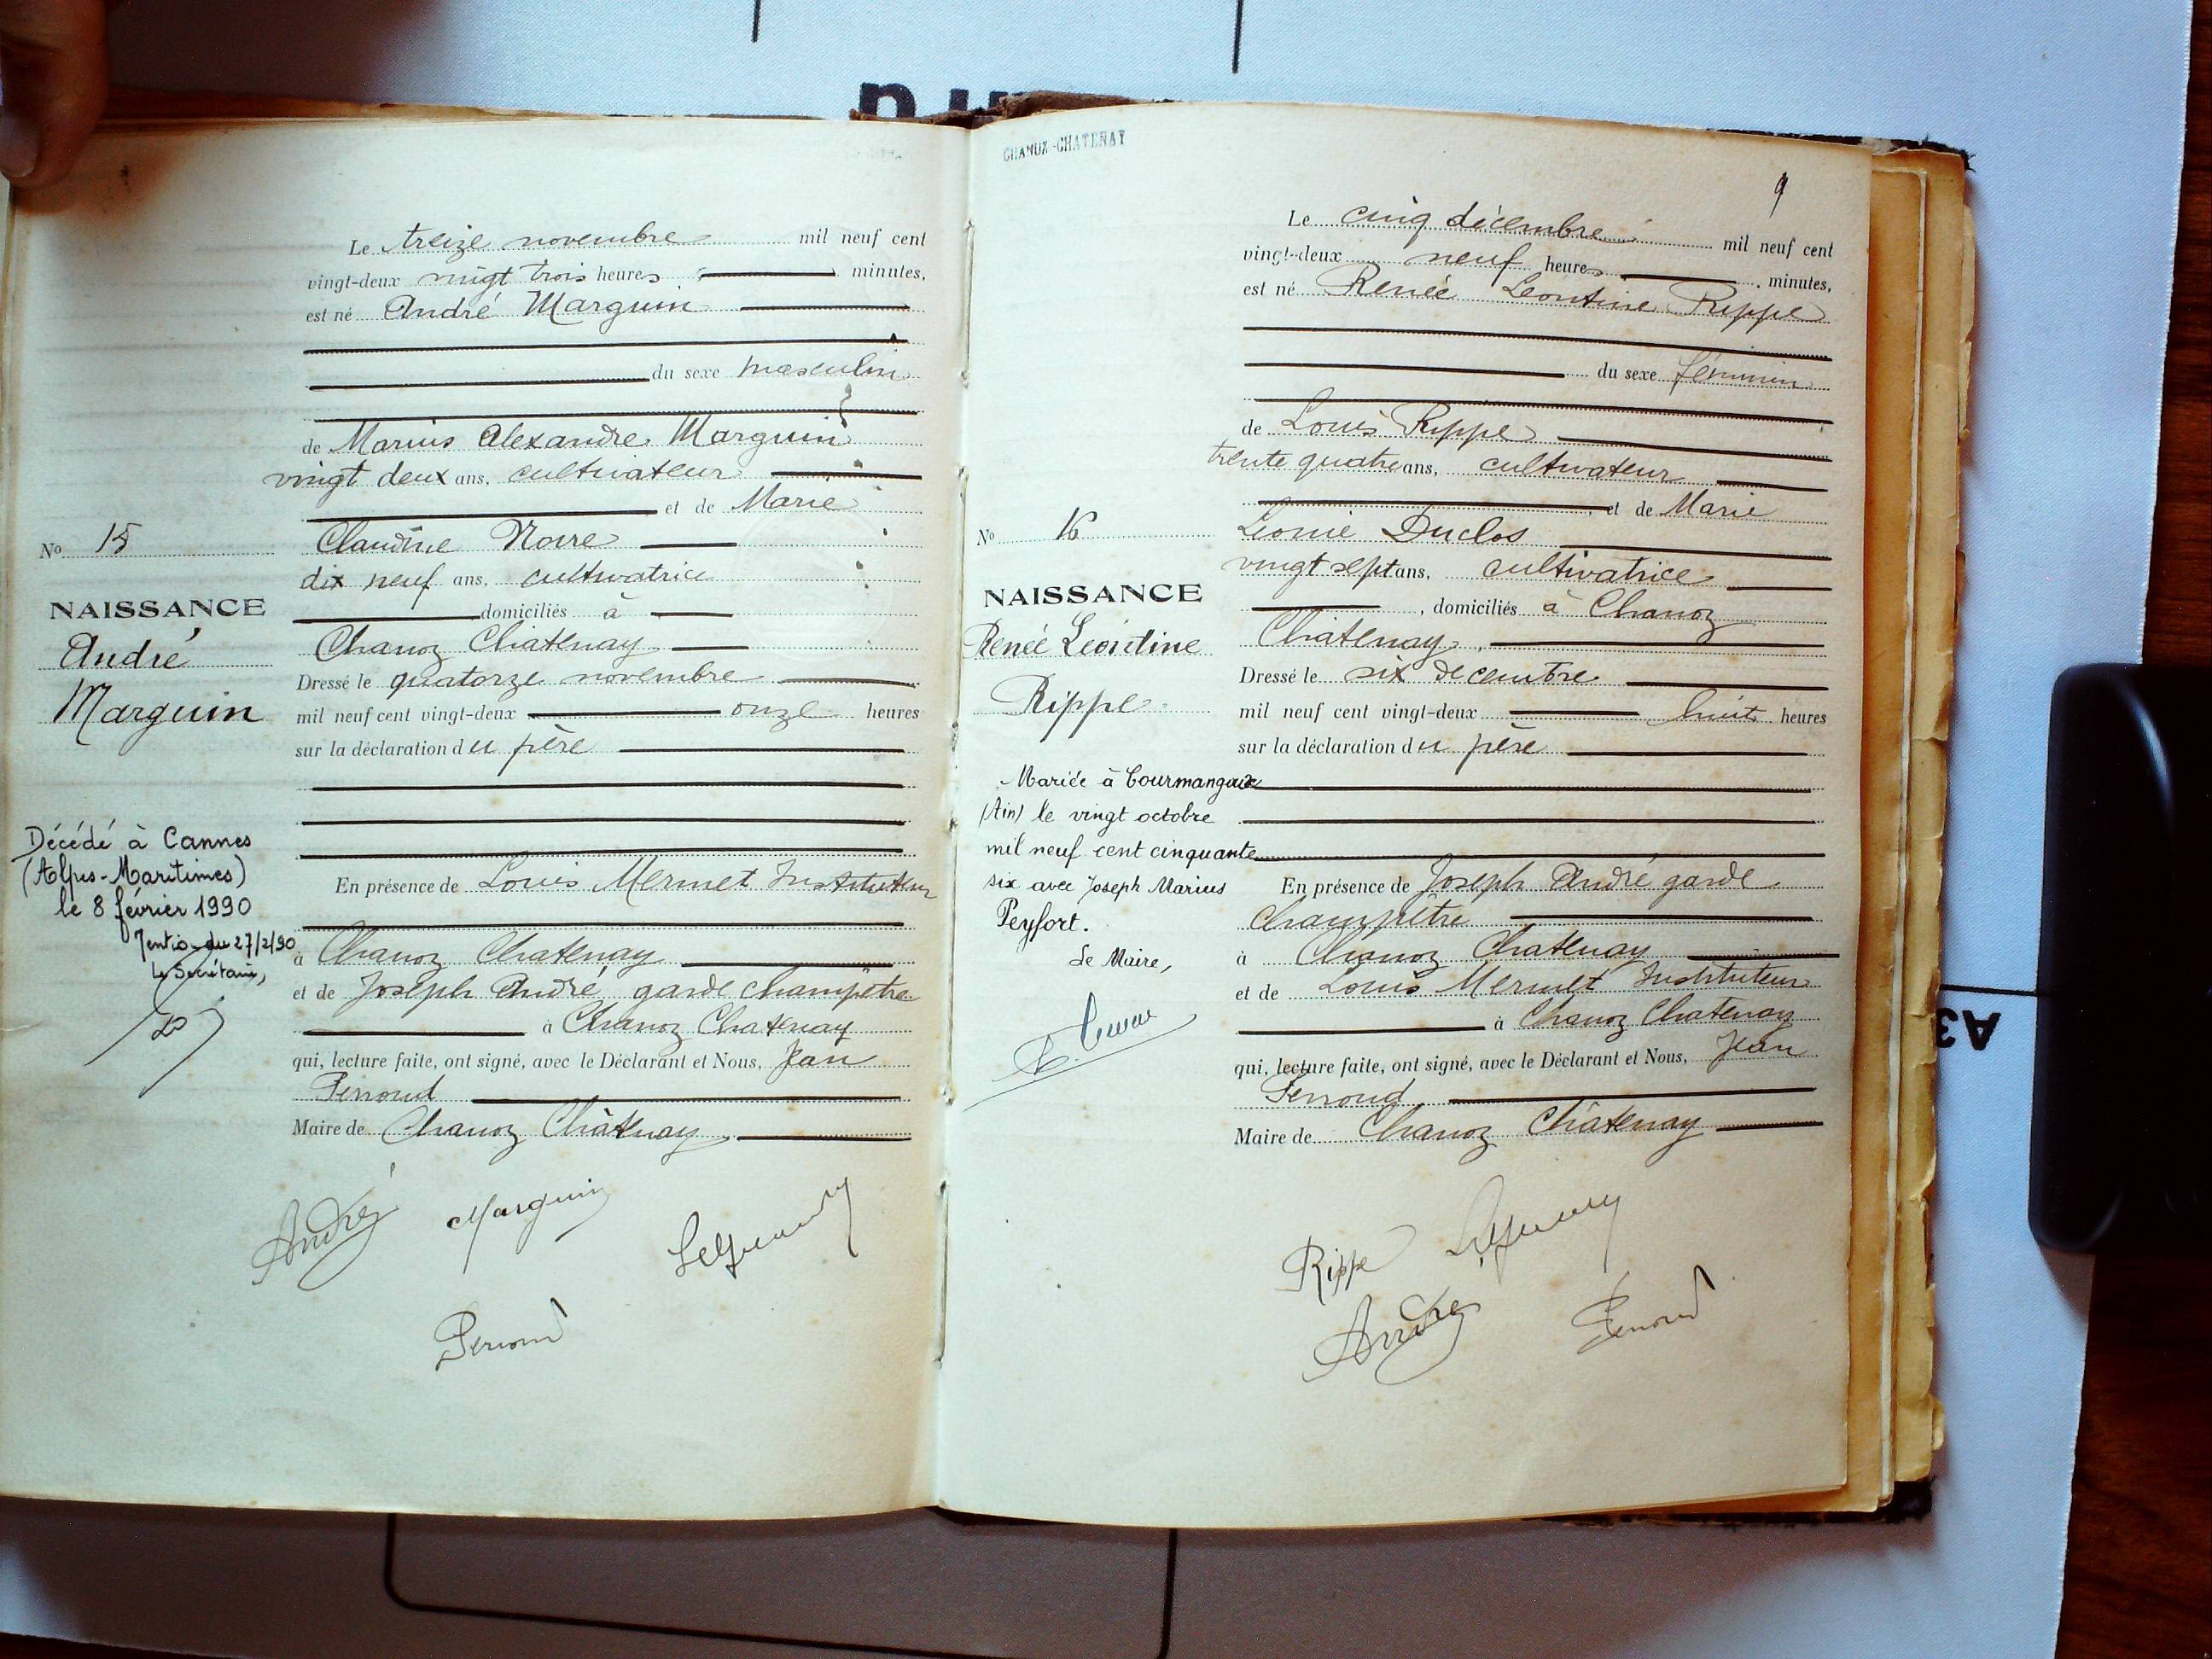 Le treize novembre mil neuf cent
vingt-deux vingt trois heures minutes,
est né André Marguin
du sexe masculin
de Marius Alexandre Marguin
vingt deux ans, cultivateur
et de Marie
Claudine Noire
dix neuf ans, cultivatrice
domiciliés à
Chanoz Châtenay
Dressé le quatorze novembre
mil neuf cent vingt-deux onze heures
sur la déclaration du père
En présence de Louis Mermet Instituteur
à Chanoz Chatenay
et de Joseph André, garde champêtre
à Chanoz Chatenay
qui, lecture faite, ont signé, avec le Déclarant et Nous, Jean
Perroud
Maire de Chanoz Châtenay
André Marguin
Perroud
No 15
NAISSANCE
André
Marguin
Décédé à Cannes
(Alpes-Maritimes)
le 8 février 1990
du 27/2/90
Le Secrétaire,
CHANOZ-CHATENAY
9
Le cinq décembre mil neuf cent
vingt-deux neuf heures minutes,
est né Renée Leontine Rippe
du sexe féminin
de Louis Rippe
trente quatre ans, cultivateur
et de Marie
Leonie Duclos
vingt sept ans, cultivatrice
, domiciliés à Chanoz
Châtenay
Dressé le six decembre
mil neuf cent vingt-deux huit heures
sur la déclaration du père
En présence de Joseph André garde
champêtre
à Chanoz Chatenay
et de Louis Mermet Instituteur
à Chanoz Chatenay
qui, lecture faite, ont signé, avec le Déclarant et Nous, Jean
Perroud
Maire de Chanoz Châtenay
Rippe
André Perroud
No 16
NAISSANCE
Renée Léontine
Rippe
Mariée à Courmangoux
(Ain) le vingt octobre
mil neuf cent cinquante
six avec Joseph Marius
Peyfort.
Le Maire,
A3